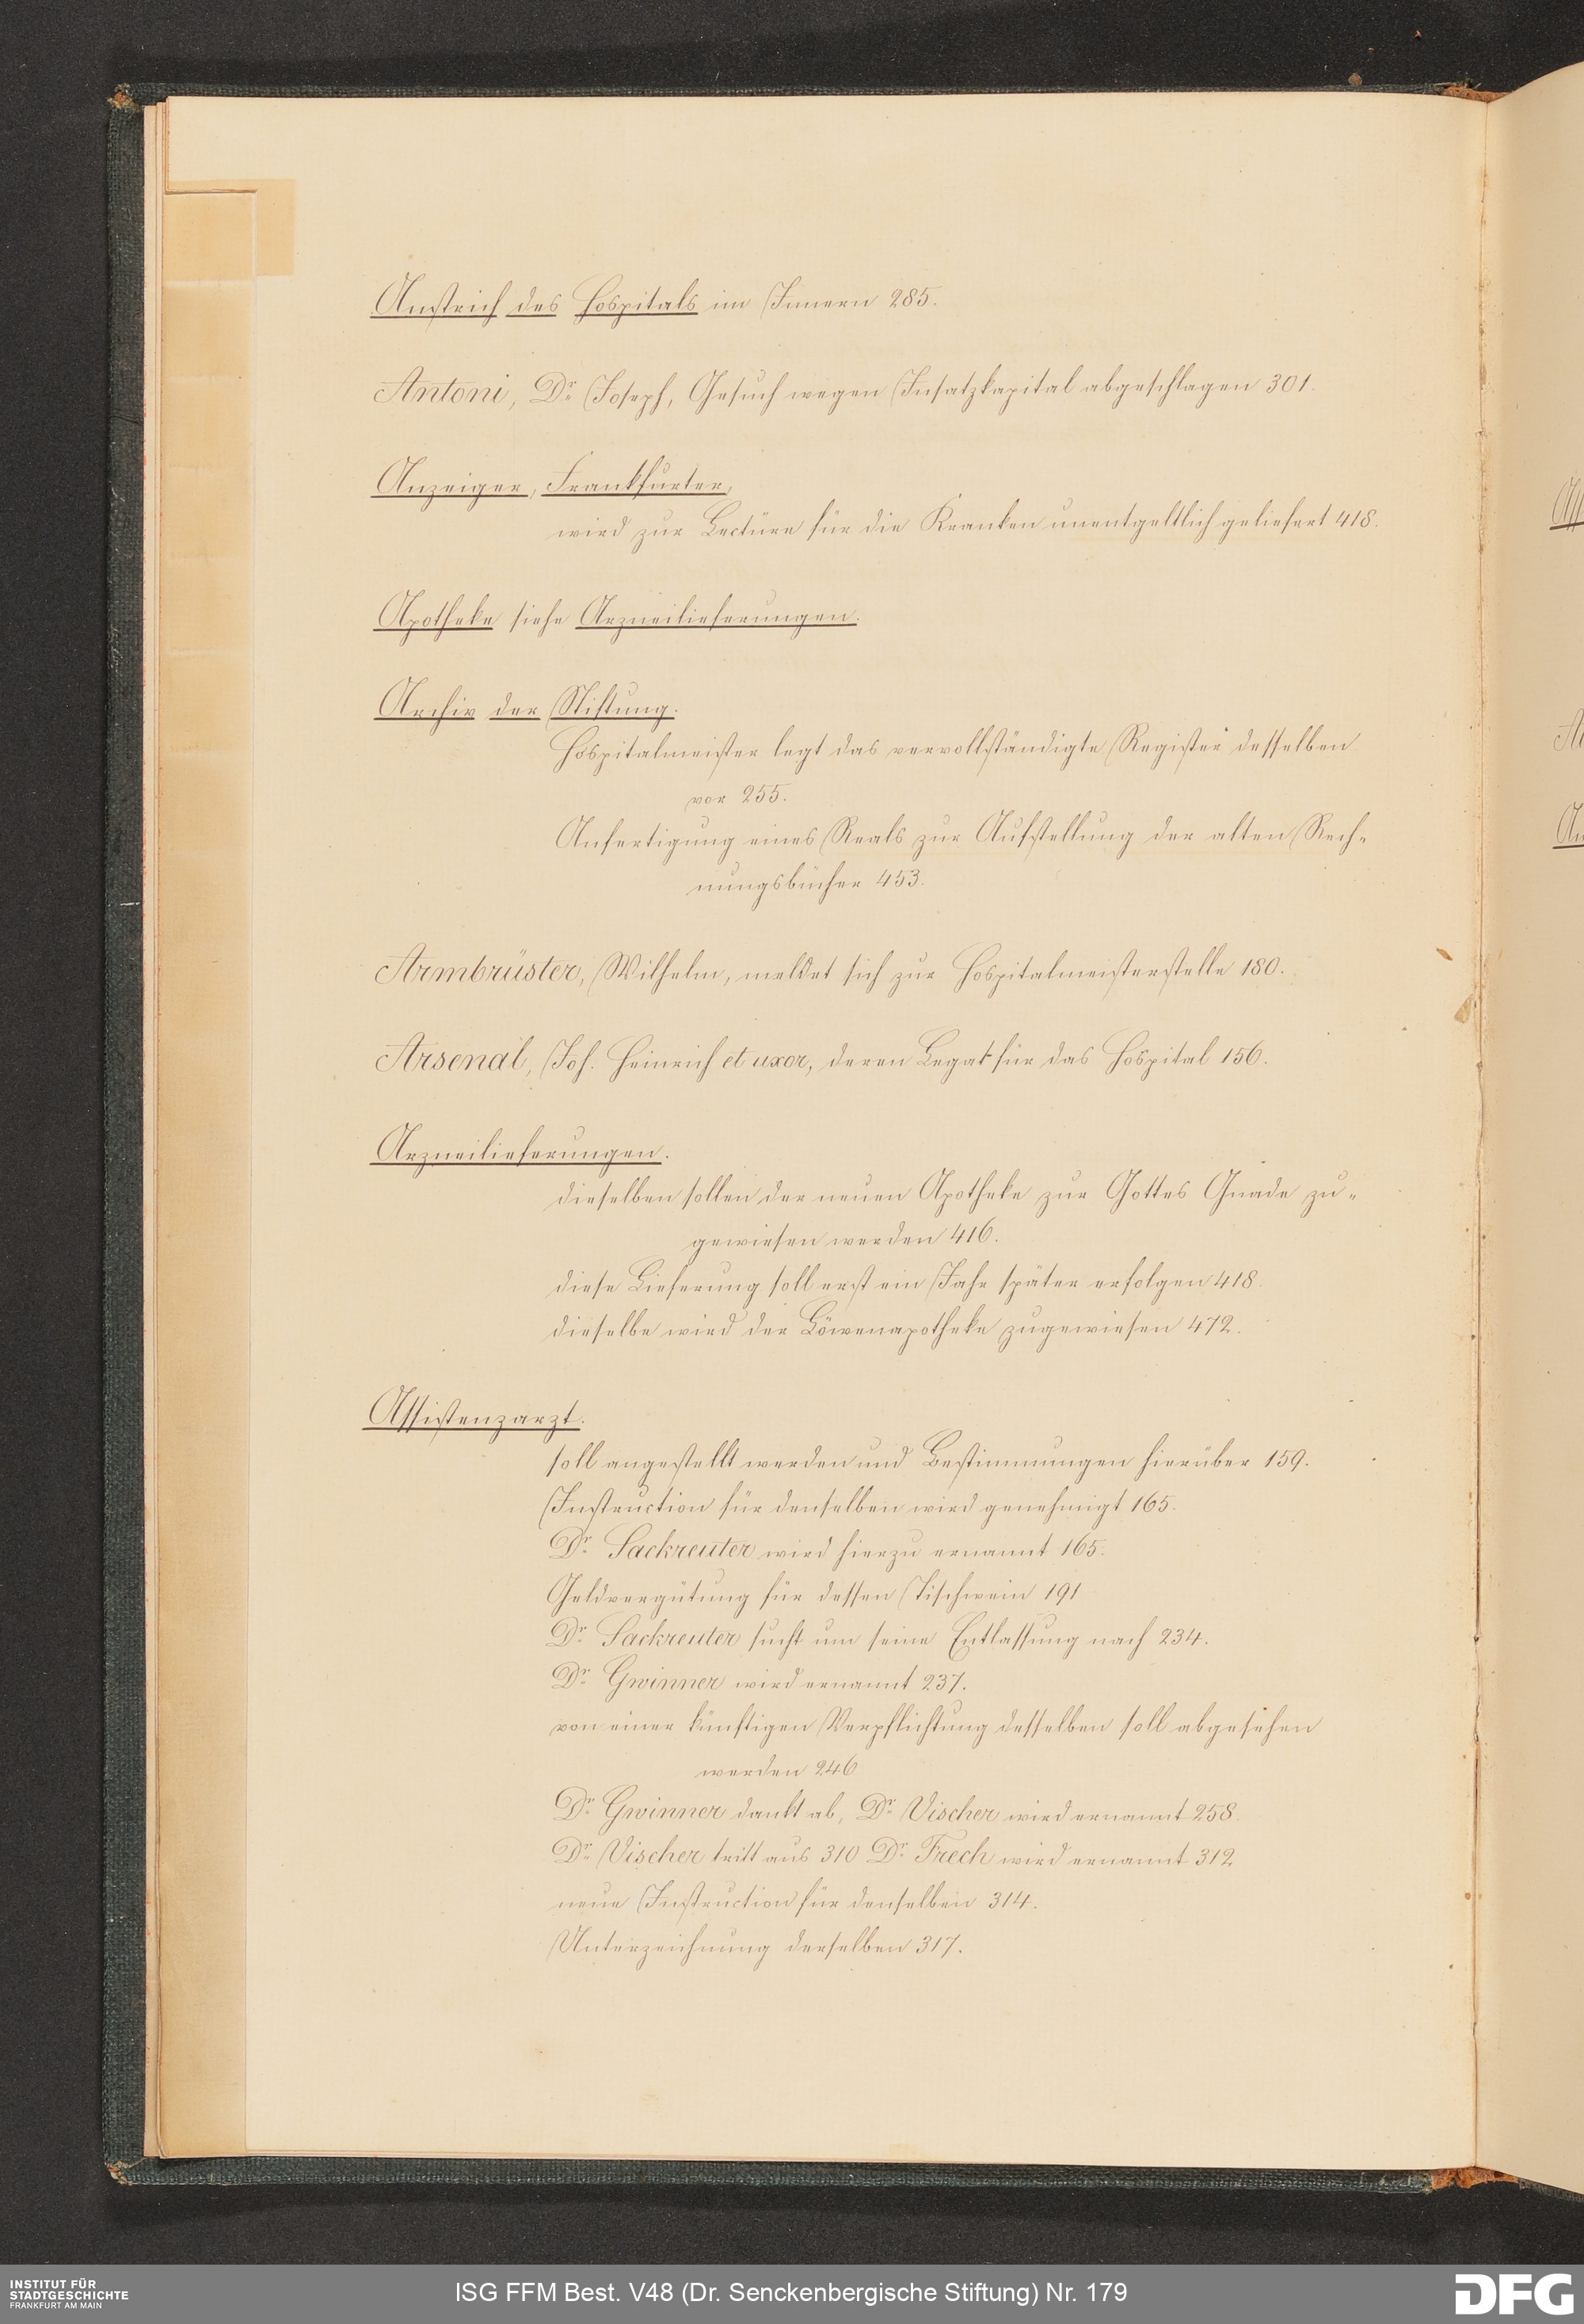 Anstrich des Hospitals im Innern 285.
Antoni, Dr. Joseph, Gesuch wegen Insatzkapital abgeschlagen 301.
Anzeiger, Frankfurter,
wird zur Lectüre für die Kranken unentgeltlich geliefert 418.
Apotheke siehe Arzneilieferungen.
Archiv der Stiftung.
Hospitalmeister legt das vervollständigte Register desselben
vor 255.
Anfertigung eines Reals zur Aufstellung der alten Rech-
nungsbücher 453.
Armbrüster, Wilhelm, meldet sich zur Hospitalmeisterstelle 180.
Arsenal, Joh. Heinrich et uxor, deren Legat für das Hospital 156.
Arzneilieferungen.
dieselben sollen der neuen Apotheke zur Gottes Gnade zu-
gewiesen werden 416.
diese Lieferung soll erst ein Jahr später erfolgen 418.
dieselbe wird der Löwenapotheke zugewiesen 472.
Assistenzarzt.
soll angestellt werden und Bestimmungen hierüber 159.
Instruction für denselben wird genehmigt 165.
Dr. Sackreuter wird hierzu ernannt 165.
Geldvergütung für dessen Tischwein 191
Dr. Sackreuter sucht um seine Entlassung nach 234.
Dr. Gwinner wird ernannt 237.
von einer künftigen Verpflichtung desselben soll abgesehen
werden 246
Dr. Gwinner dankt ab, Dr. Vischer wird ernannt 258.
Dr. Vischer tritt aus 310 Dr. Frech wird ernannt 312
neue Instruction für denselben 314.
Unterzeichnung derselben 317.
INSTITUT FÜR
STADTGESCHICHTE
FRANKFURT AM MAIN
ISG FFM Best. V48 (Dr. Senckenbergische Stiftung) Nr. 179
DFG